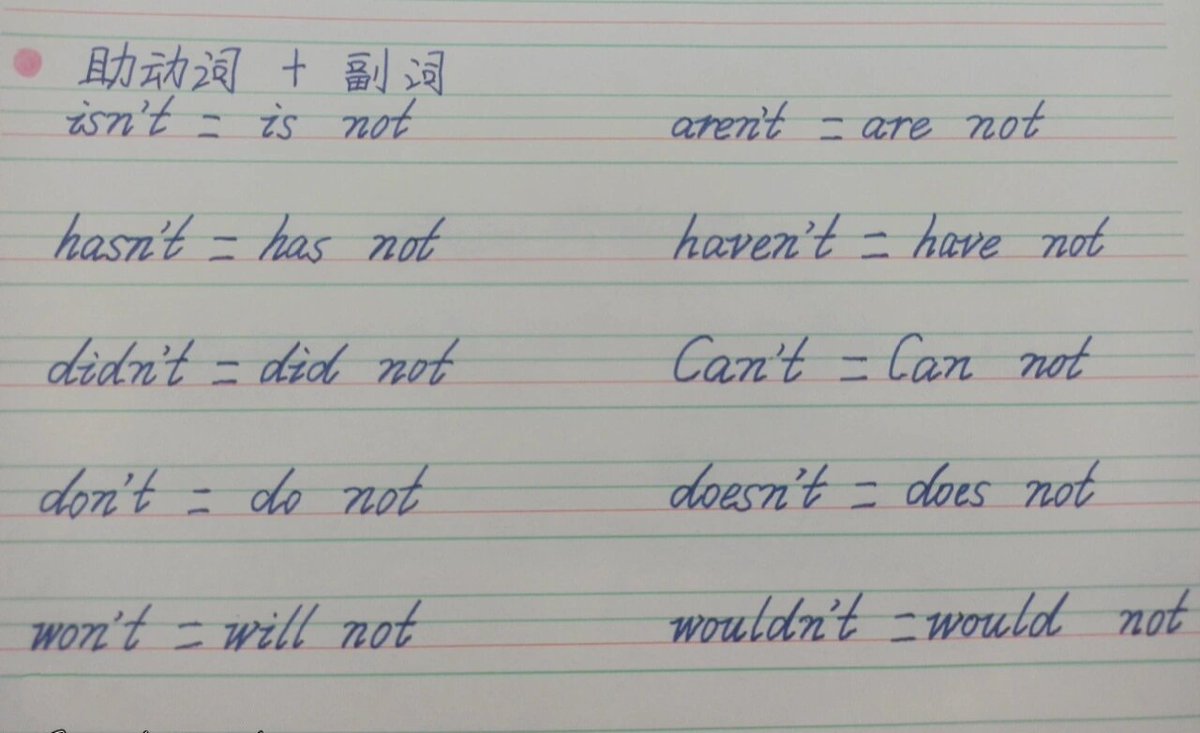 助动词 + 副词
isn't = is not aren't = are not
hasn't = has not haven't = have not
didn't = did not Can't = Can not
don't = do not doesn't = does not
won't = will not wouldn't = would not